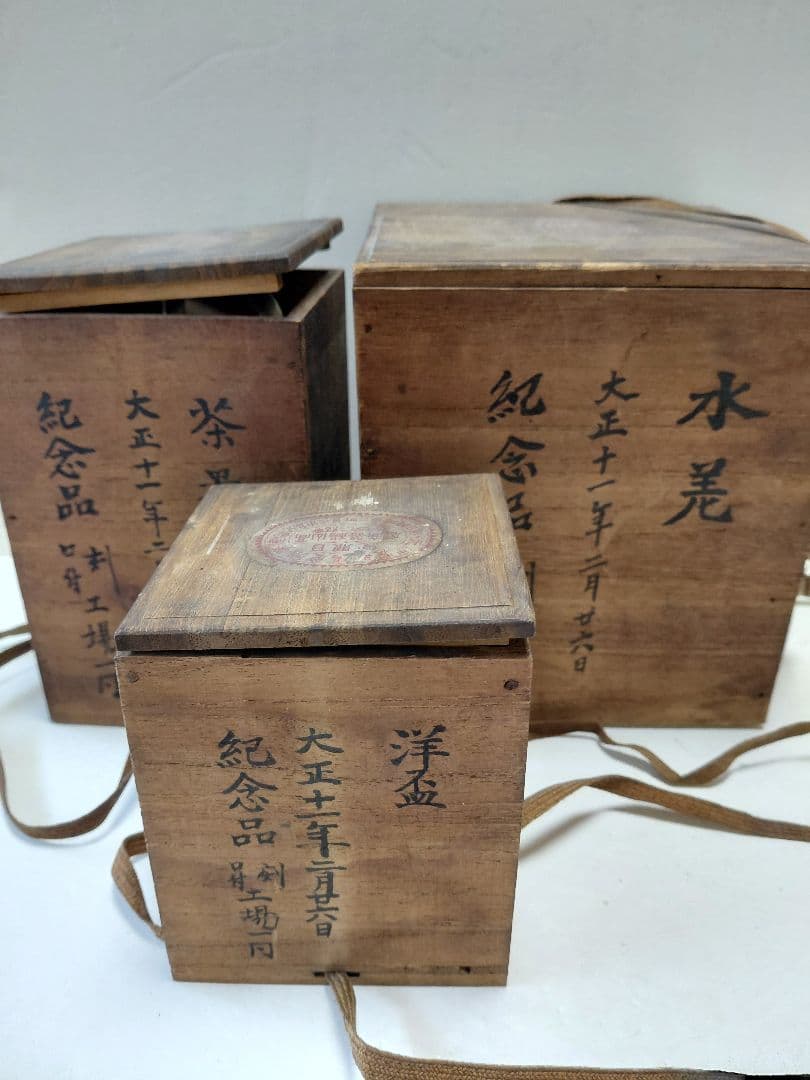 水差
大正十一年二月廿六日
紀念品
茶
大正十一年二
紀念品
工場一同
洋盃
大正十一年二月廿六日
紀念品
工場一同